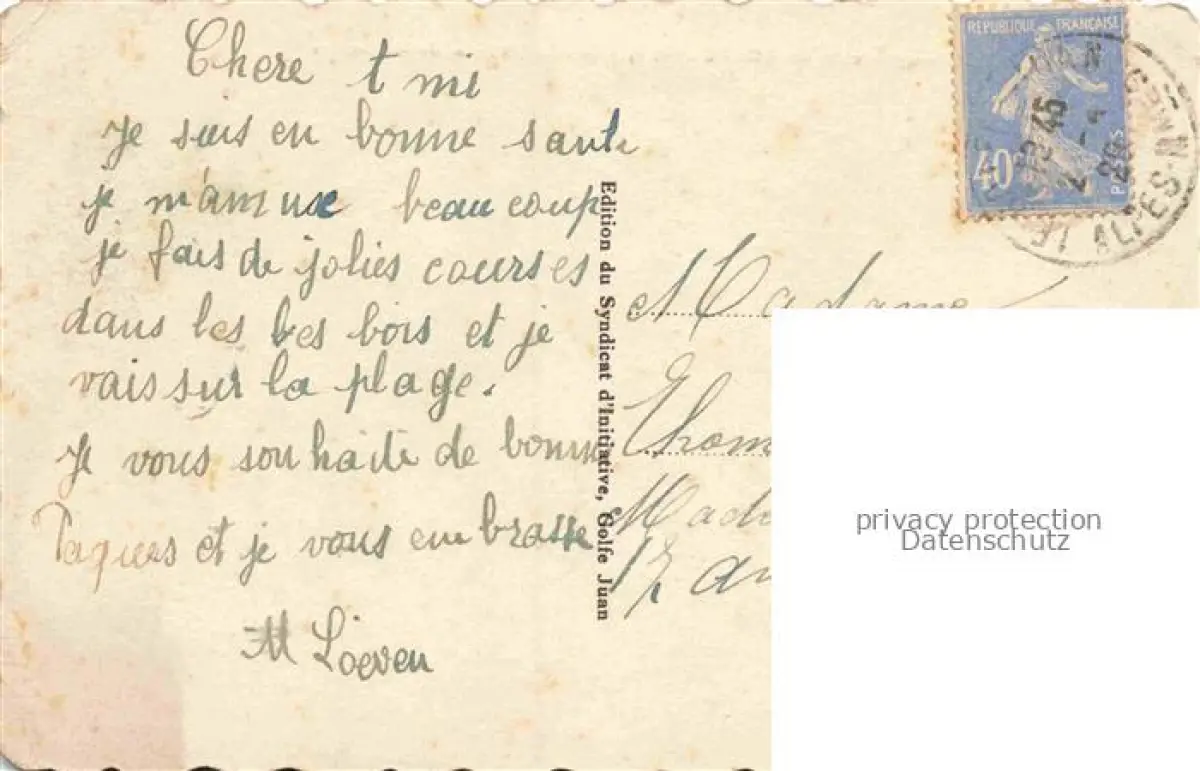 Chere t mi
Je suis en bonne sante
je m'amuse beaucoup
je fais de jolies courses
dans les bes bois et je
vais sur la plage.
Je vous souhaite de bonne
Paques et je vous embrasse
M Loeven
Edition du Syndicat d'Initiative, Golfe Juan
REPUBLIQUE FRANÇAISE
40
POSTES
ALPES-M
Madame
Thom
Mad
privacy protection
Datenschutz